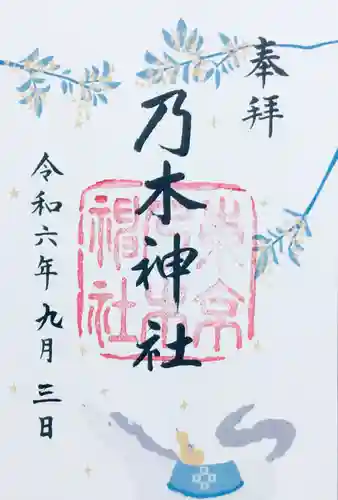 奉拝
乃木神社
令和六年九月三日